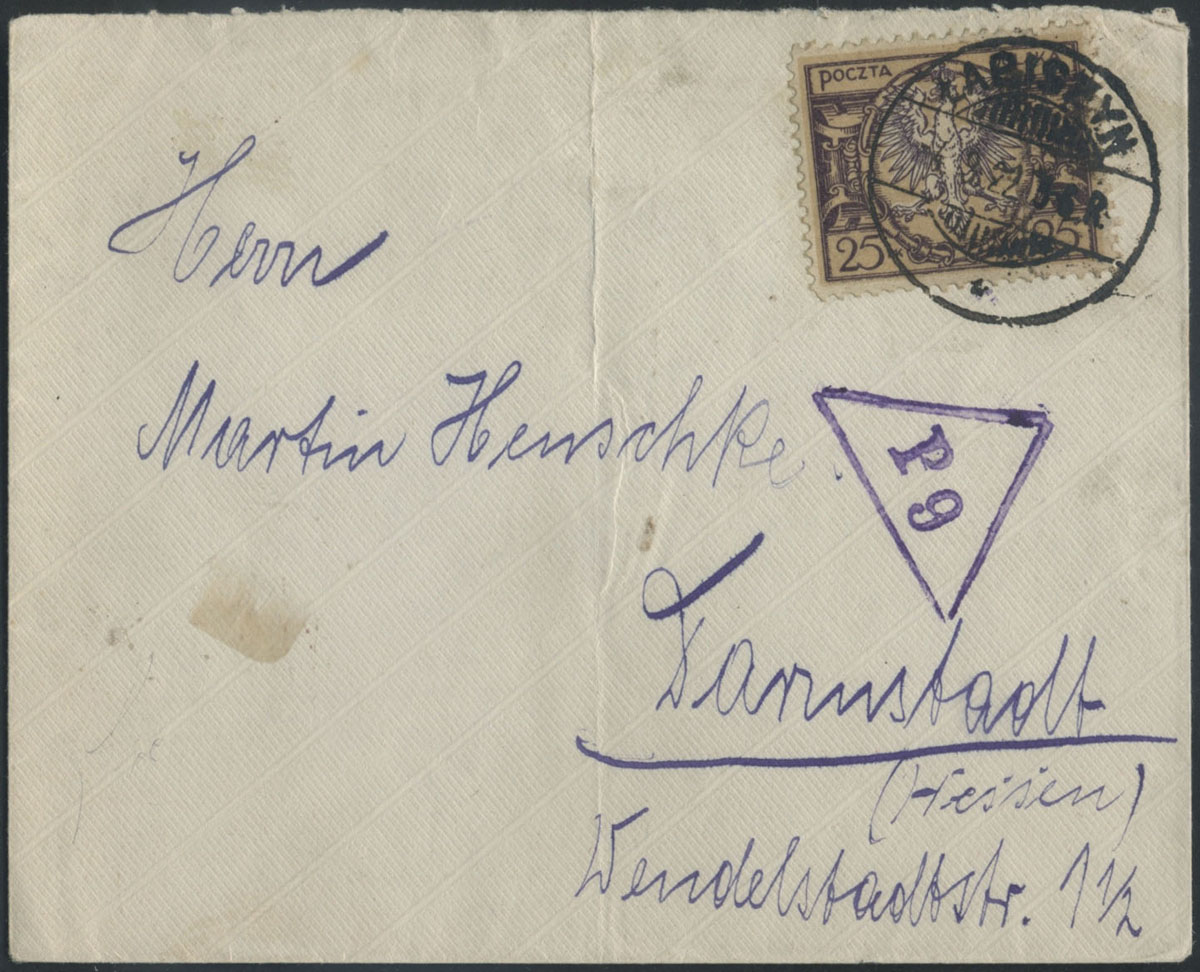 POCZTA
25
25
ŁABISZYN
22
Herrn
Martin Henschke.
P 9
Darmstadt
(Hessen)
Wendelstadtstr. 1 1/2